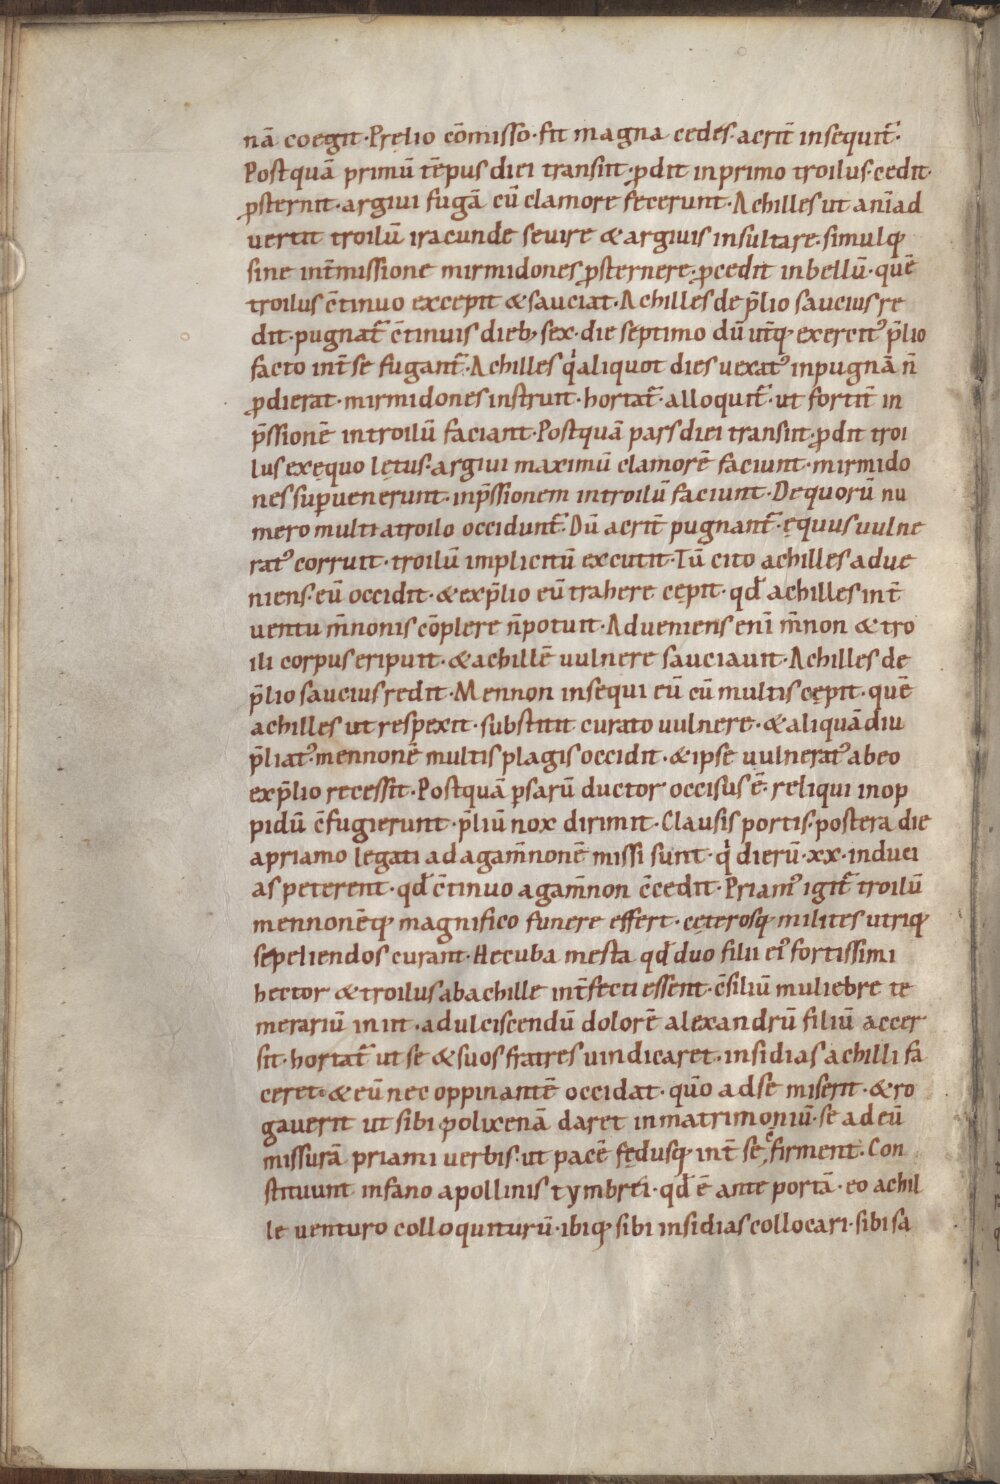 nā coegit·Pręlio cōmisso·fit magna cedes·acrit̄ insequit᷑·
Postquā primū tēpus diei transiit·ꝓdit inprimo troilus·cedit·
ꝓsternit·argiui fugā cū clamore fecerunt·Achilles ut anīad
vertit troilū iracunde sevire &argiuis insultare·simulq;
sine int̄missione mirmidones ꝓsternere·ꝓcedit inbellū·quē
troilus c̄tinuo excepit &sauciat·Achilles de p̄lio saucius re
dit·pugnat᷑ c̄tinuis dieb; sex·die septimo dū ut̄q; exercitꝰ p̄lio
facto int̄ se fugant᷑·Achilles qͥ aliquot dies uexatꝰ inpugnā n̄
ꝓdierat·mirmidones instruit·hortat᷑·alloquit᷑·ut fortit̄ in
p̄ssionē introilū faciant·Postquā pars diei transiit·ꝓdit troi
lus exęquo lętus·argiui maximū clamorē faciunt·mirmido
nes suꝑuenerunt·inp̄ssionem introilū faciunt·Dequorū nu
mero multi atroilo occidunt᷑·Dū acrit̄ pugnant᷑·ęquus uulne
ratꝰ corruit·troilū implicitū excutit·Tū cito achilles adue
niens·eū occidit·&exp̄lio eū trahere cępit·qd̄ achilles int̄
ventu m̄nonis cōplere n̄potuit·Adueniens enī m̄non &tro
ili corpus eripuit·&achillē vulnere sauciauit·Achilles de
p̄lio saucius redit·Mennon insequi eū cū multis cępit·quē
achilles ut respexit·substitit curato vulnere·&aliquādiu
p̄liatꝰ·mennonē multis plagis occidit·&ipse vulneratꝰ abeo
exp̄lio recessit·Postquā ꝑsarū ductor occisus ē·reliqui inop
pidū c̄fugierunt·p̄liū nox dirimit·Clausis portis·postera die
apriamo legati ad agam̄nonē missi sunt·qͥ dierū·xx·induci
as peterent·qd̄ c̄tinuo agam̄non c̄cedit·Priamꝰ igit᷑ troilū
mennonēq; magnifico funere effert·cęterosq; milites utriq;
sepeliendos curant·Hecuba mesta qd̄ duo filii eiꝰ fortissimi
hector &troilus abachille int̄fecti essent·c̄siliū muliebre te
merariū iniit·adulciscendū dolorē alexandrū filiū accer
sit·hortat᷑ ut se &suos fratres vindicaret·insidias achilli fa
ceret·&eū nec oppinantē occidat·quō adse miserit·&ro
gaverit ut sibi polixenā daret inmatrimoniū·se ad eū
missurā priami verbis·ut pacē fędusq; int̄ se c̄firment·Con
stituunt infano apollinis tymbrei·qd̄ ē ante portā·eo achil
le venturo colloquiturū·ibiq; sibi insidias collocari·sibi sa